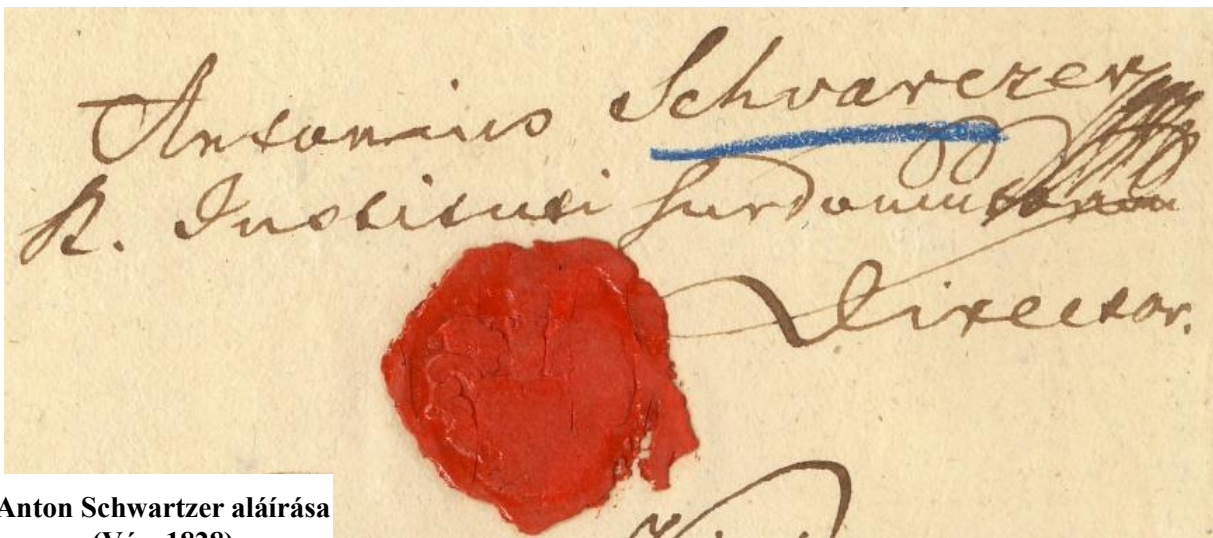 Antonius Schvarczer
R. Instituti Surdomutorum
Director.
Anton Schwartzer aláírása